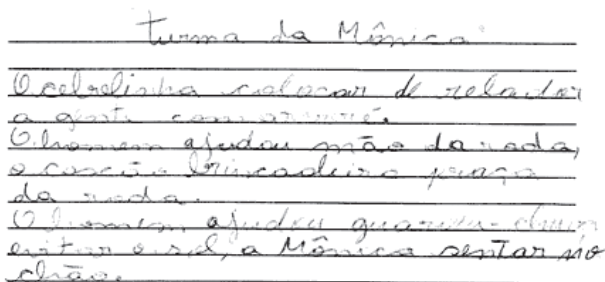 turma da Mônica
O celrelinha colocar de relador
a gente com
O homem ajudou mão da rada,
o cascão brincadeira praça
da rada.
O homem ajudou guarda-chuva
evitar o sol, a Mônica sentar no
chão.